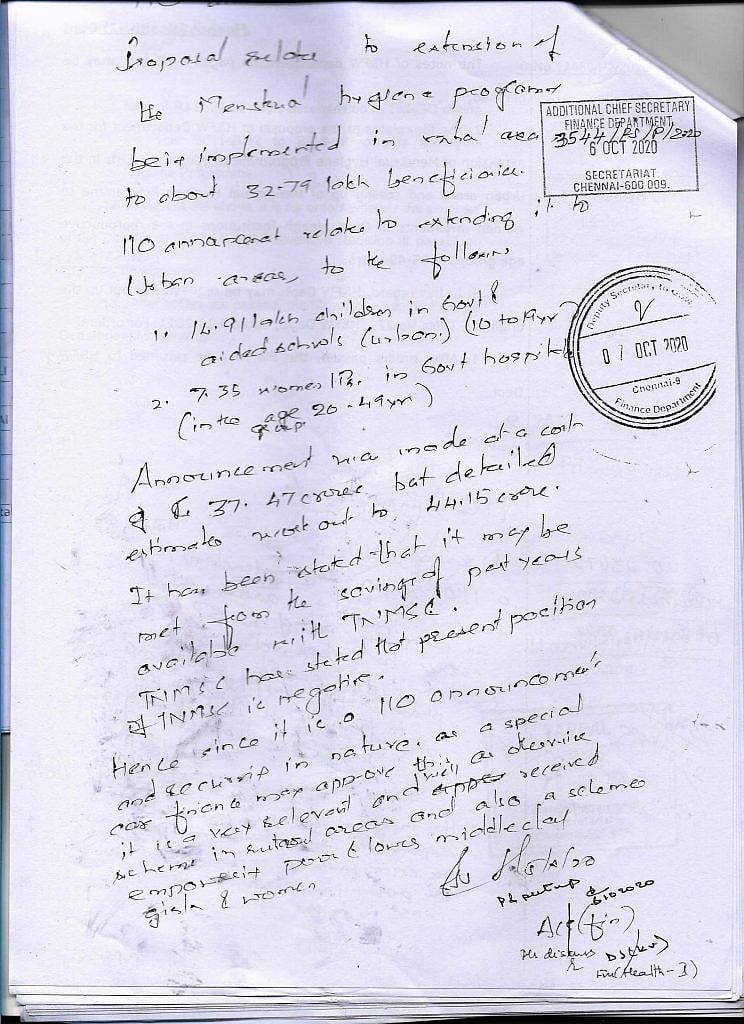 Proposal relates to extension of
the Menstrual hygiene programe
being implemented in rural area
to about 32.79 lakh beneficiaries.
110 announcement relates to extending it to
Urban areas, to the following
1. 14.91 lakh children in Govt &
aided schools (urban) (10 to 19 yr)
2. 7.35 women IPs. in Govt hospitals
(in the age group 20-49 yr)
Announcement was made at a cost
of 37.47 crores but detailed
estimates work out to 44.15 crore.
It has been stated that it may be
met from the savings of past years
available with TNMSC.
TNMSC has stated that present position
of TNMSC is negative.
Hence since it is a 110 announcement
and in nature, as a special
case finance may approve this, as
it is a very relevant and well received
scheme in areas and also a scheme
poor & lower middle class
girls & women
Pl put up
6102020
ACS (fin)
Pls discuss
Fin (Health-I)
ADDITIONAL CHIEF SECRETARY
FINANCE DEPARTMENT
3544/RS/P/2020
6 OCT 2020
SECRETARIAT
CHENNAI-600 009.
Deputy Secretary to Govt.
07 OCT 2020
Chennai-9
Finance Department